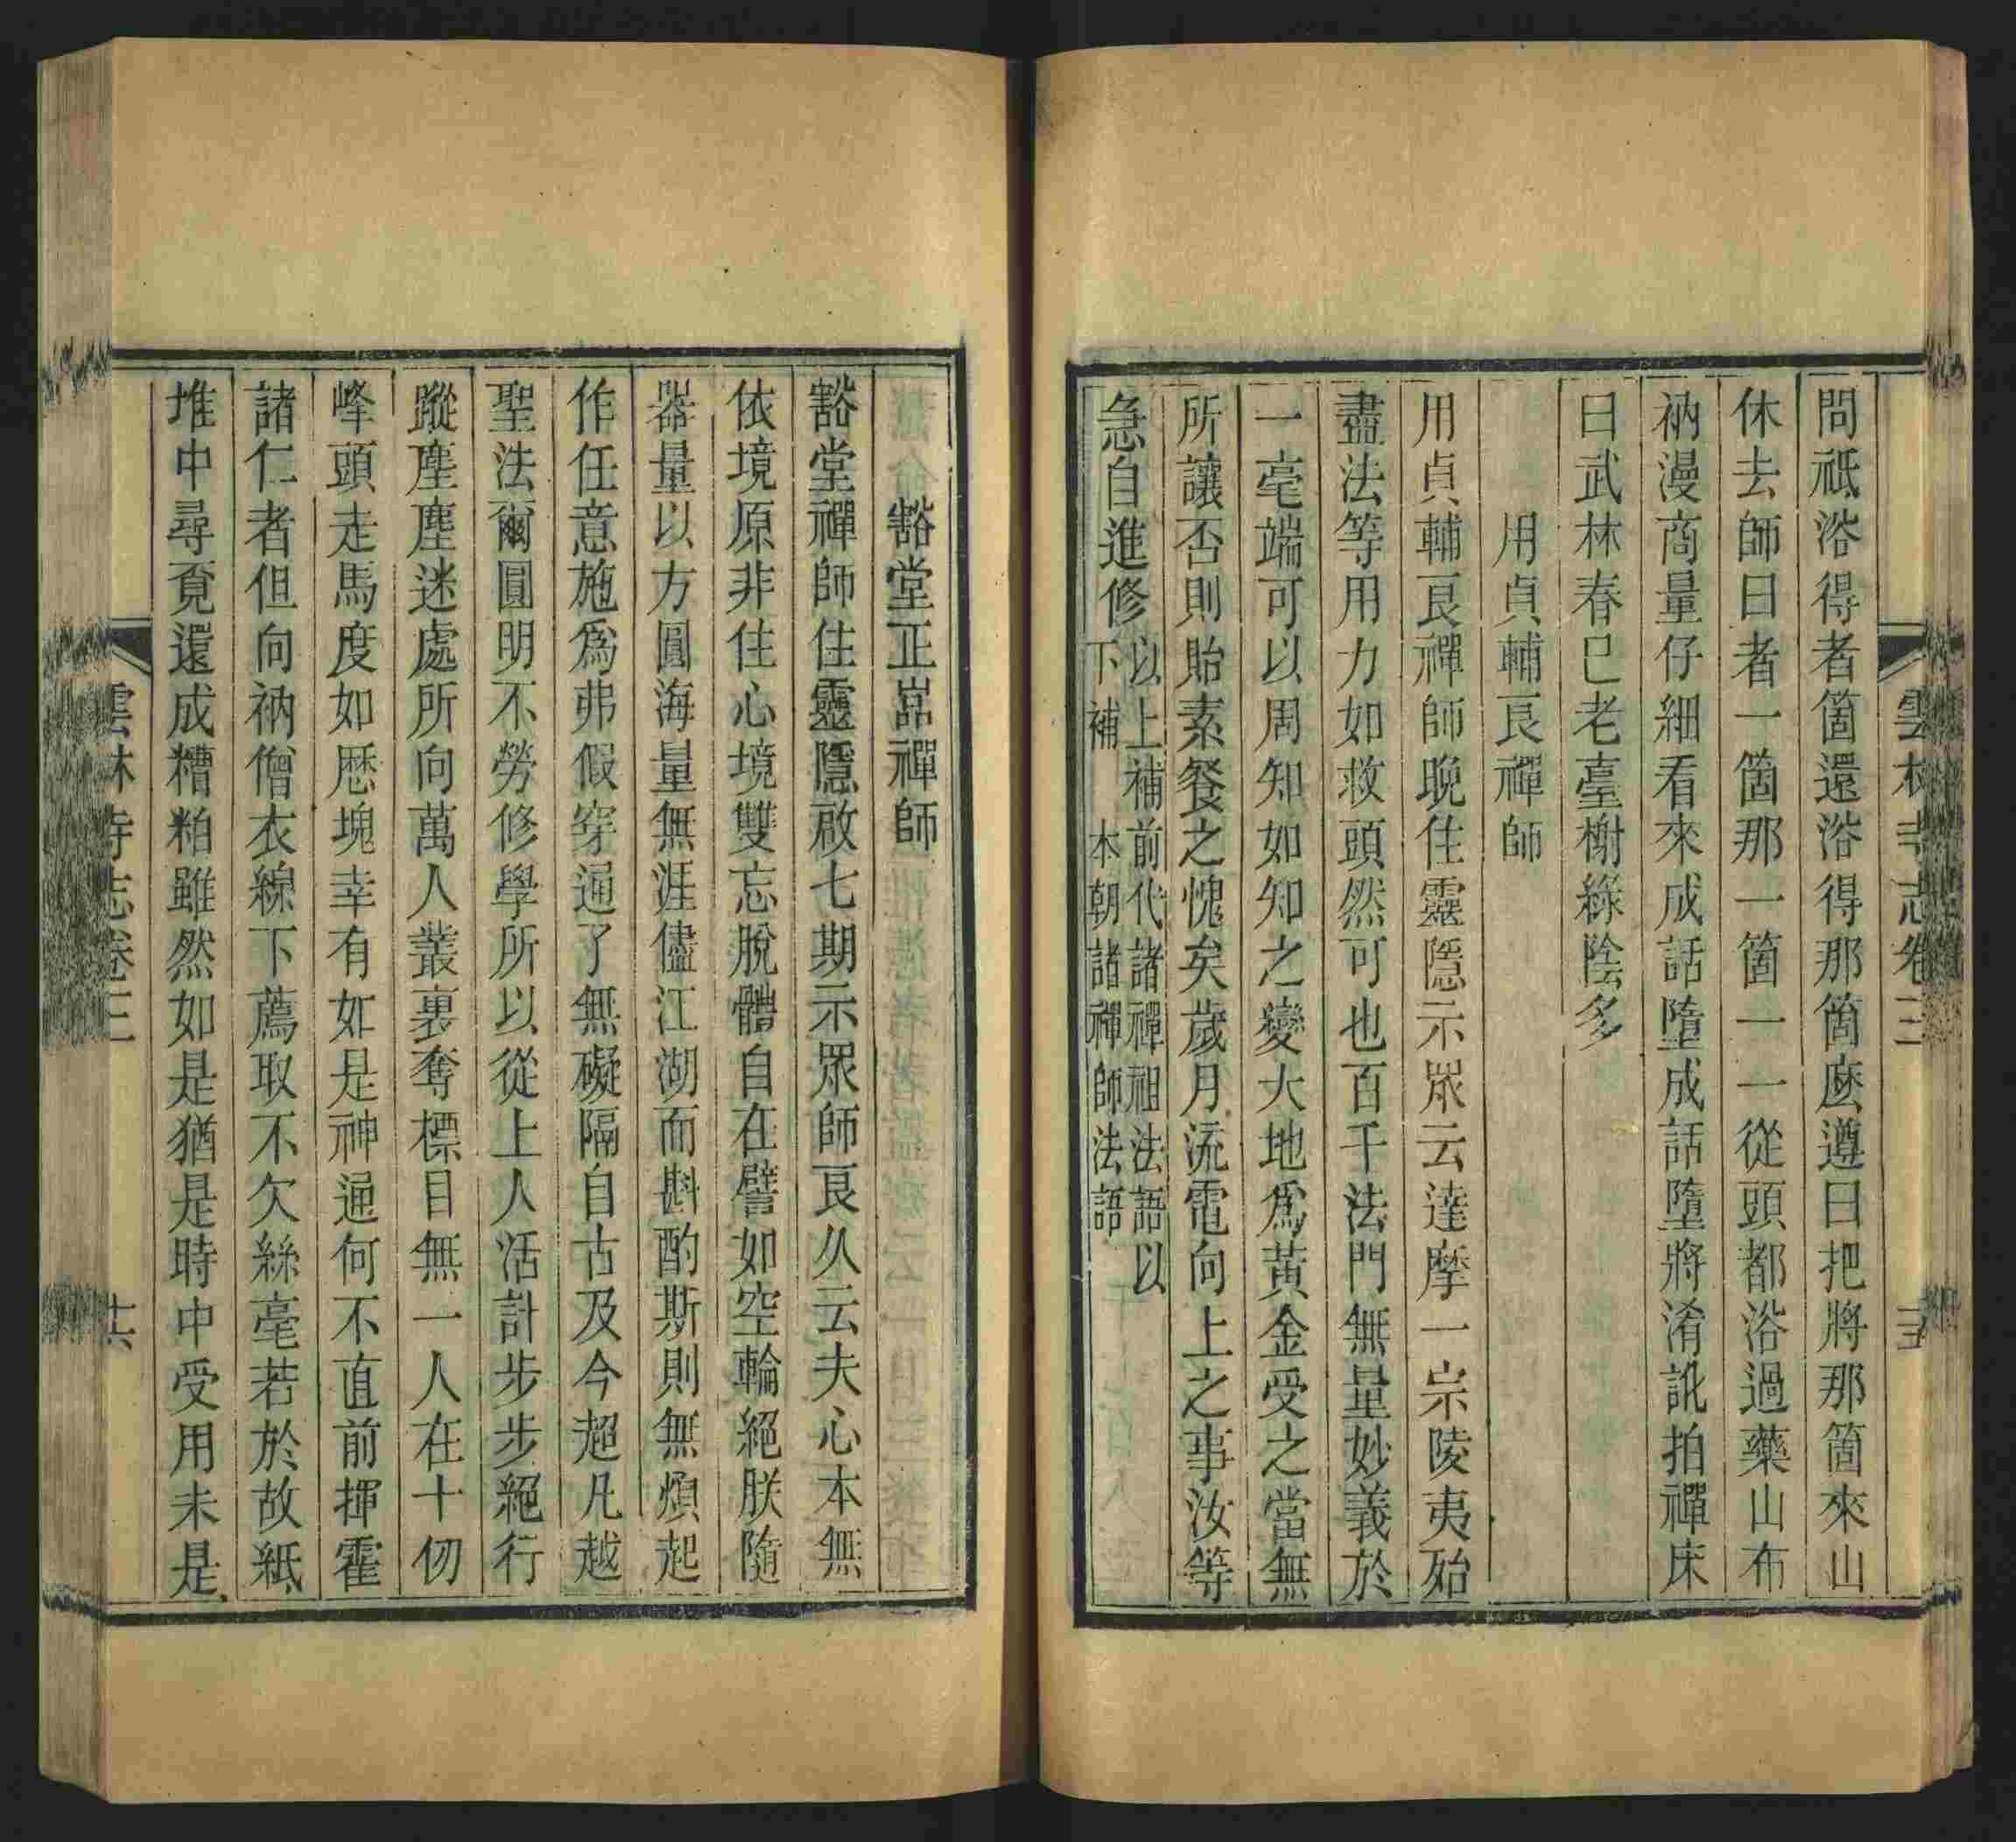 雲林寺志卷三
問祗浴得者箇還浴得那箇麽遵曰把將那箇來山
休去師曰者一箇那一箇一一從頭都浴過藥山布
衲漫商量仔細看來成話墮成話墮將淆訛拍禪床
曰武林春已老臺榭綠陰多
用貞輔良禪師
用貞輔良禪師晚住靈隱示眾云達摩一宗陵夷殆
盡法等用力如救頭然可也百千法門無量妙義於
一毫端可以周知如知之變大地爲黃金受之當無
所讓否則貽素餐之愧矣歲月流電向上之事汝等
急自進修
以上補前代諸禪祖法語以
下補 本朝諸禪師法語
豁堂正嵓禪師
豁堂禪師住靈隱啟七期示眾師良久云夫心本無
依境原非住心境雙忘脫體自在譬如空輪絕朕隨
器量以方圓海量無涯儘江湖而斟酌斯則無煩起
作任意施爲弗假穿通了無礙隔自古及今超凡越
聖法爾圓明不勞修學所以從上人活計步步絕行
蹤塵塵迷處所向萬人叢裏奪標目無一人在十仞
峰頭走馬度如歷塊幸有如是神通何不直前揮霍
諸仁者但向衲僧衣線下薦取不欠絲毫若於故紙
堆中尋覔還成糟粕雖然如是猶是時中受用未是
雲林寺志卷三
十六